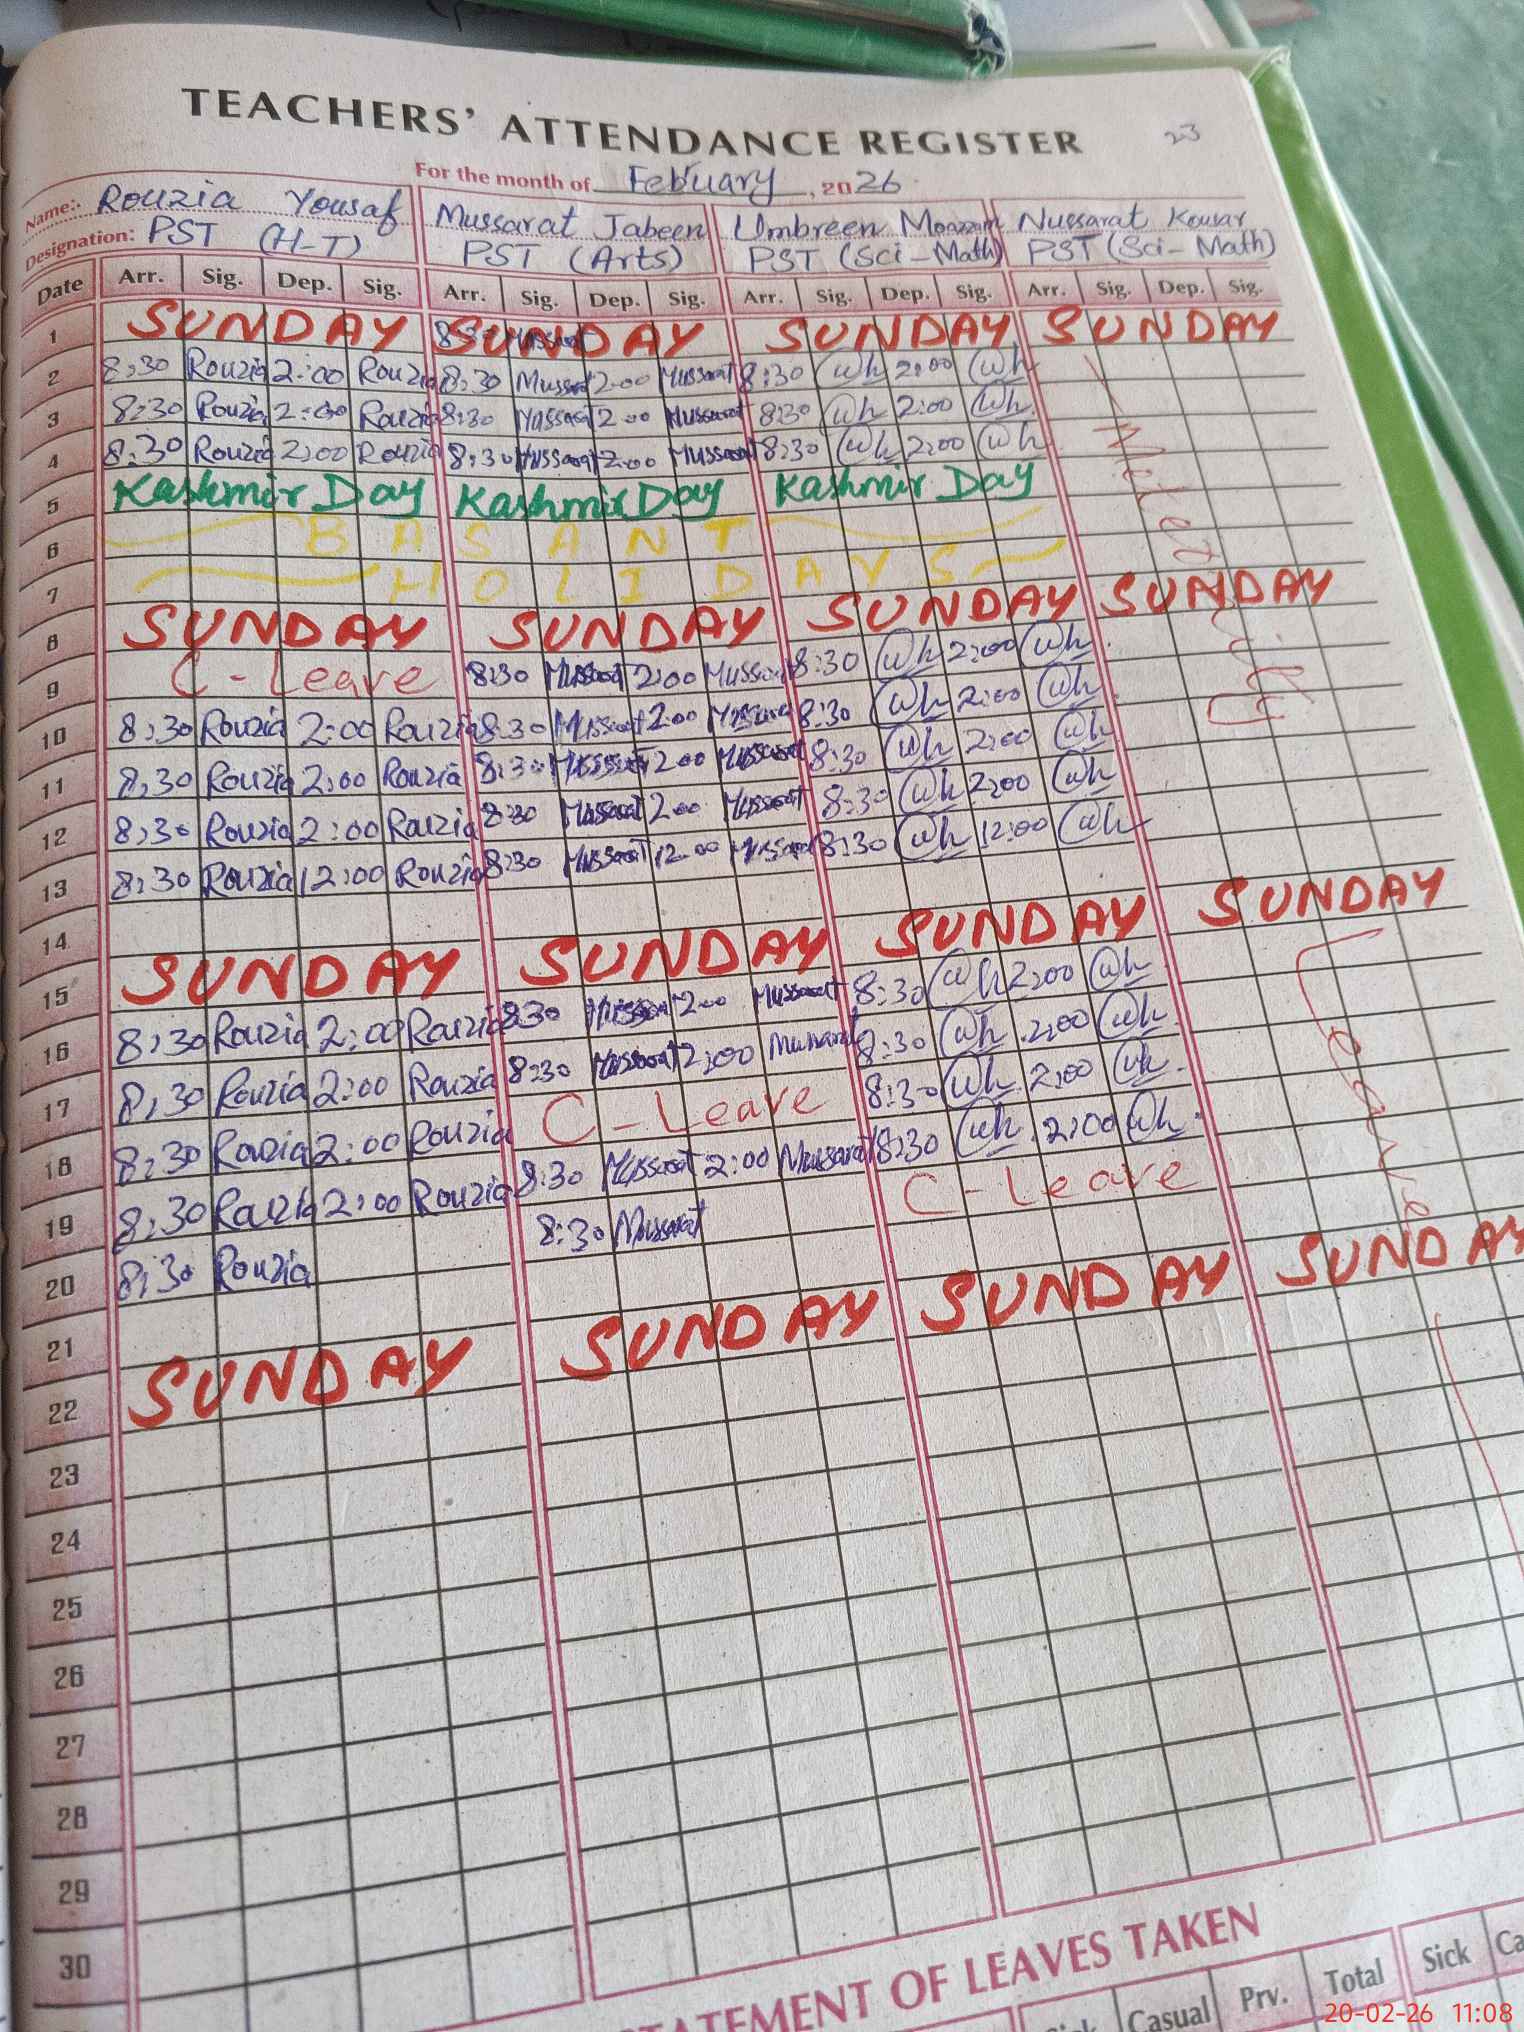 TEACHERS' ATTENDANCE REGISTER 23
For the month of Febuary, 2026
Name:- Rouzia Yousaf Mussarat Jabeen Umbreen Moazzam Nussarat Kousar
Designation: PST (H-T) PST (Arts) PST (Sci-Math) PST (Sci-Math)
Date Arr. Sig. Dep. Sig. Arr. Sig. Dep. Sig. Arr. Sig. Dep. Sig. Arr. Sig. Dep. Sig.
1 SUNDAY SUNDAY SUNDAY SUNDAY
2 8:30 Rouzia 2:00 Rouzia 8:30 Mussarat 2:00 Mussarat 8:30 2:00
3 8:30 Rouzia 2:00 Rouzia 8:30 Mussarat 2:00 Mussarat 8:30 2:00
4 8:30 Rouzia 2:00 Rouzia 8:30 Mussarat 2:00 Mussarat 8:30 2:00
5 Kashmir Day Kashmir Day Kashmir Day
6 BASANT
7 HOLIDAYS
8 SUNDAY SUNDAY SUNDAY SUNDAY
9 C-Leave 8:30 Mussarat 2:00 Mussarat 8:30 2:00
10 8:30 Rouzia 2:00 Rouzia 8:30 Mussarat 2:00 Mussarat 8:30 2:00
11 8:30 Rouzia 2:00 Rouzia 8:30 Mussarat 2:00 Mussarat 8:30 2:00
12 8:30 Rouzia 2:00 Rouzia 8:30 Mussarat 2:00 Mussarat 8:30 2:00
13 8:30 Rouzia 12:00 Rouzia 8:30 Mussarat 12:00 Mussarat 8:30 12:00
14
15 SUNDAY SUNDAY SUNDAY SUNDAY
16 8:30 Rouzia 2:00 Rouzia 8:30 Mussarat 2:00 Mussarat 8:30 2:00
17 8:30 Rouzia 2:00 Rouzia 8:30 Mussarat 2:00 Mussarat 8:30 2:00
18 8:30 Rouzia 2:00 Rouzia C-Leave 8:30 2:00
19 8:30 Rouzia 2:00 Rouzia 8:30 Mussarat 2:00 Mussarat 8:30 2:00
20 8:30 Rouzia 8:30 Mussarat C-Leave
Leave
21
22 SUNDAY SUNDAY SUNDAY SUNDAY
23
24
25
26
27
28
29
30
STATEMENT OF LEAVES TAKEN
Casual Prv. Total Sick
20-02-26 11:08